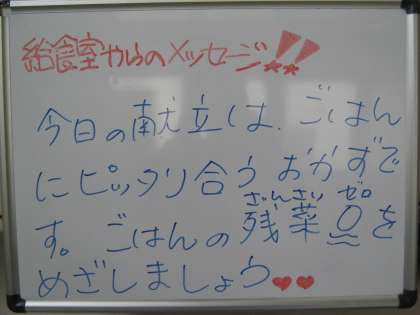 給食室からのメッセージ!!
今日の献立は、ごはん
にピッタリ合うおかずで
ざんさい ゼロ
す。ごはんの残菜0を
めざしましょう♥♥